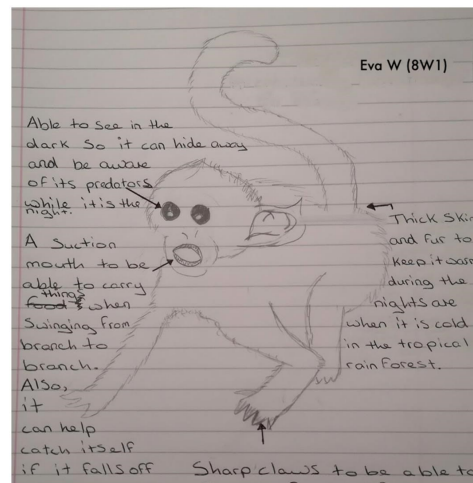 Eva W (8W1)
Able to see in the
dark so it can hide away
and be aware
of its predators
while it is the
night.
A suction
mouth to be
able to carry
things
food when
Swinging from
branch to
branch.
Also,
it
can help
catch itself
if it falls off
Thick Skin
and fur to
keep it warm
during the
nights are
when it is cold
in the tropical
rainforest.
Sharp claws to be able to